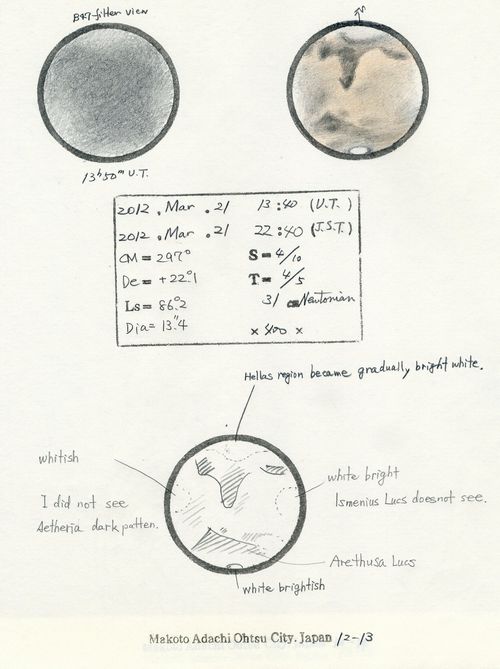 B47-filter view
13h50m U.T.
2012 . Mar . 21 13:40 (U.T.)
2012 . Mar . 21 22:40 (J.S.T.)
CM = 297° S = 4/10
De = +22.°1 T = 4/5
Ls = 86.°2 31 cm Newtonian
Dia = 13."4 × 400 ×
Hellas region became gradually bright white.
whitish
white bright
I did not see
Ismenius Lucs doesnot see.
Aetheria dark patten.
Arethusa Lucs
white brightish
Makoto Adachi Ohtsu City. Japan 12-13